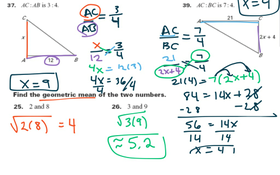 37. AC : AB is 3 : 4.
C
x
A
12
B
AC/AB = 3/4
x/12 = 3/4
4x = 12(3)
4x/4 = 36/4
x = 9
39.
A
21
C
2x + 4
B
AC/BC = 7/4
21/2x+4 = 7/4
21(4) = 7(2x+4)
84 = 14x + 28
-28 -28
56 = 14x
14 14
x = 4
Find the geometric mean of the two numbers.
25. 2 and 8
√2(8) = 4
26. 3 and 9
√3(9)
≈ 5.2